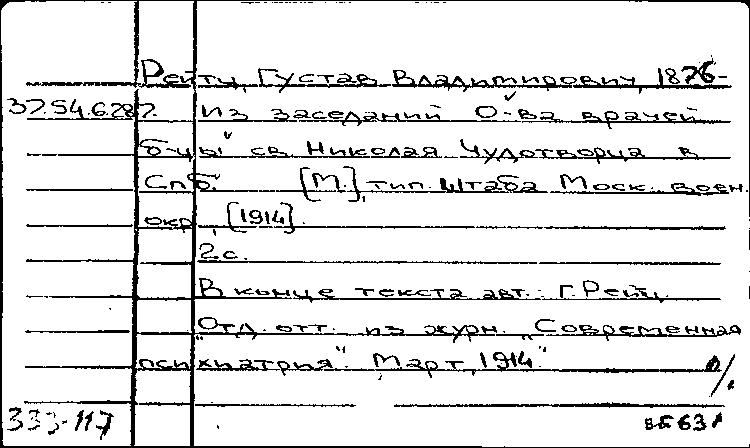 Рейтц, Густав Владимирович, 1876-
37.54.6.287. Из заседаний О-ва врачей
б-цы" св. Николая Чудотворца в
Спб. [М.], тип. Штаба Моск. воен.
окр., [1914].
2 с.
В конце текста авт.: Г. Рейтц.
"Отд. отт. из журн. "Современная
психиатрия". Март, 1914."
333-117